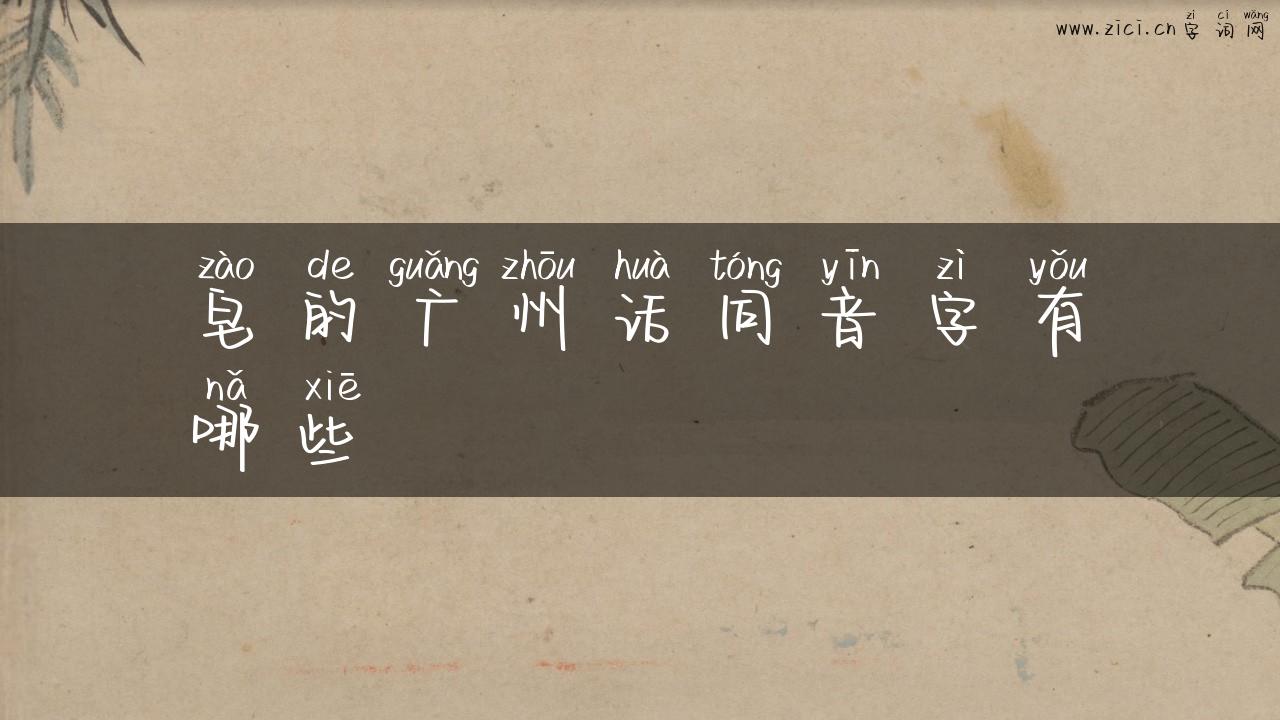 zì cí wǎng
www.zici.cn 字词网
zào de guǎng zhōu huà tóng yīn zì yǒu
皂的广州话同音字有
nǎ xiē
哪些